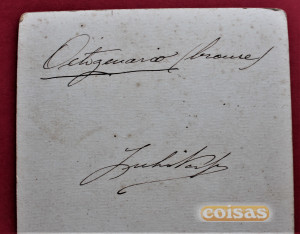 Octogenario (bronze)
coisas